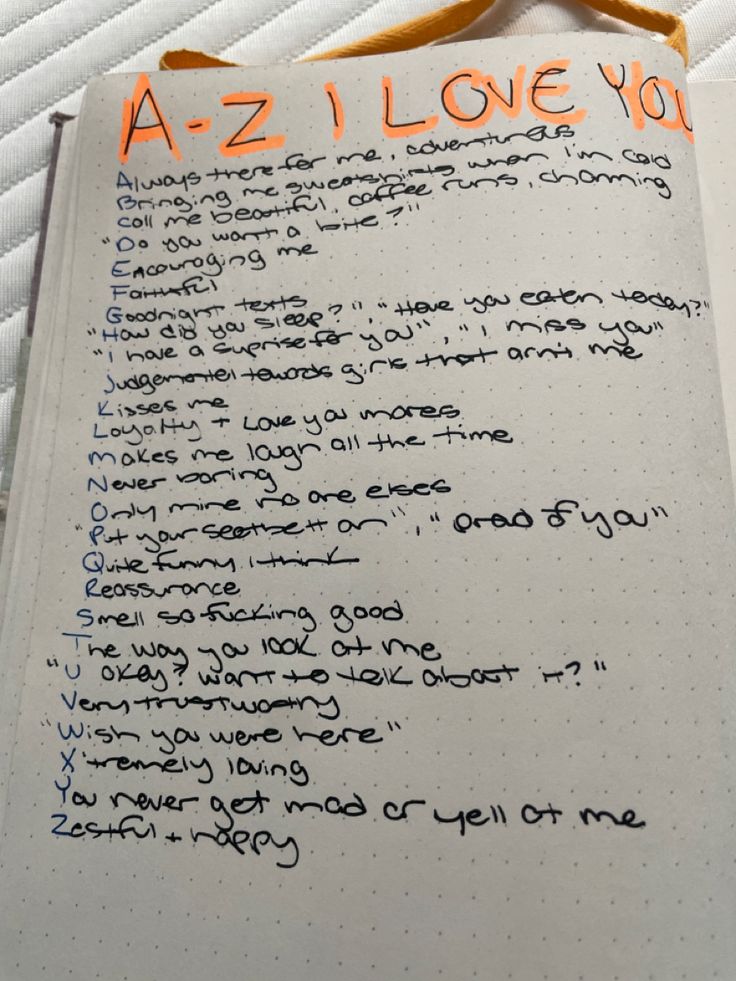 A-Z I LOVE YOU
Always there for me, adventurous
Bringing me sweatshirts when I'm cold
Call me beautiful, coffee runs, charming
"Do you want a bite?"
Encouraging me
Faithful
Goodnight texts
"How did you sleep?", "Have you eaten today?"
"I have a suprise for you", "I miss you"
Judgemental towards girls that arn't me
Kisses me
Loyalty + Love you mores
Makes me laugh all the time
Never boring
Only mine no one elses
"Put your seatbelt on", "proud of you"
Quite funny I think
Reassurance
Smell so fucking good
The way you look at me
"U okay? want to talk about it?"
Very trustworthy
"Wish you were here"
X'tremely loving
You never get mad or yell at me
Zestful + happy